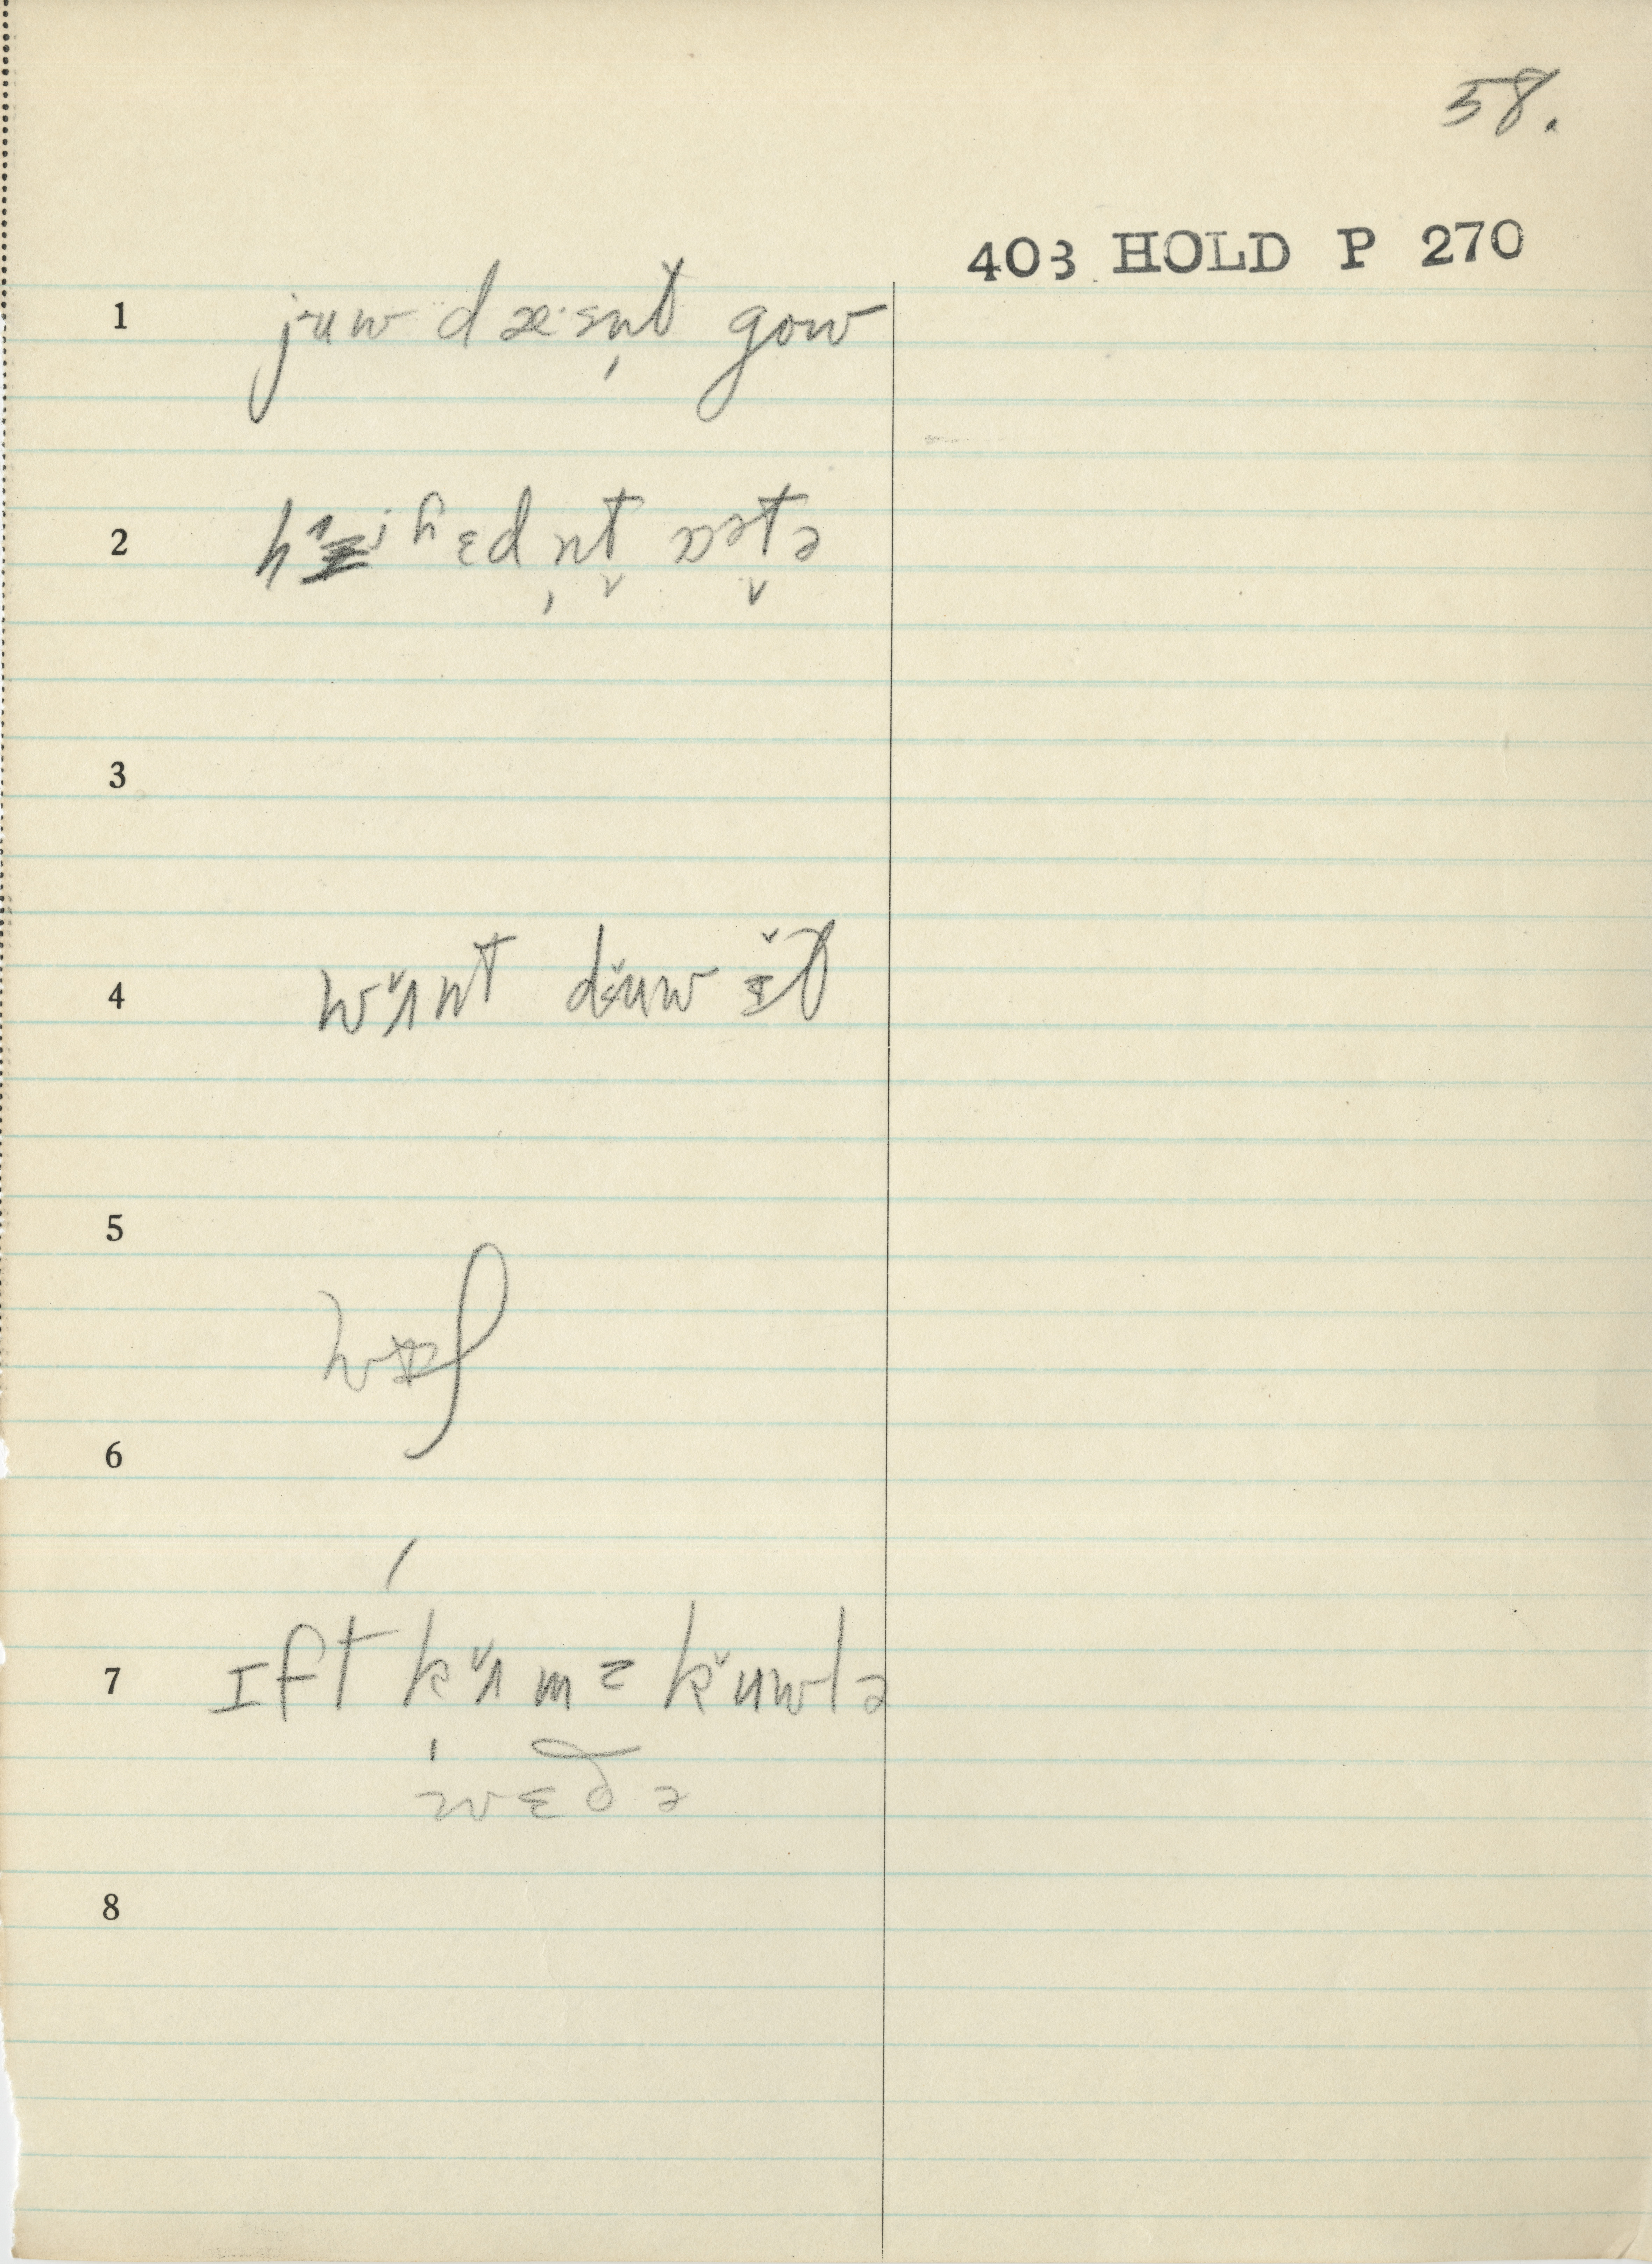 58.
403 HOLD P 270
1 juw dæ·sn̩t gow
2 hɛdn̩t ɒətə
3
4 wʌnt duw ɪt
5
wɪʃ
6
7 ɪft kʌmz kuwlə
wɛðə
8